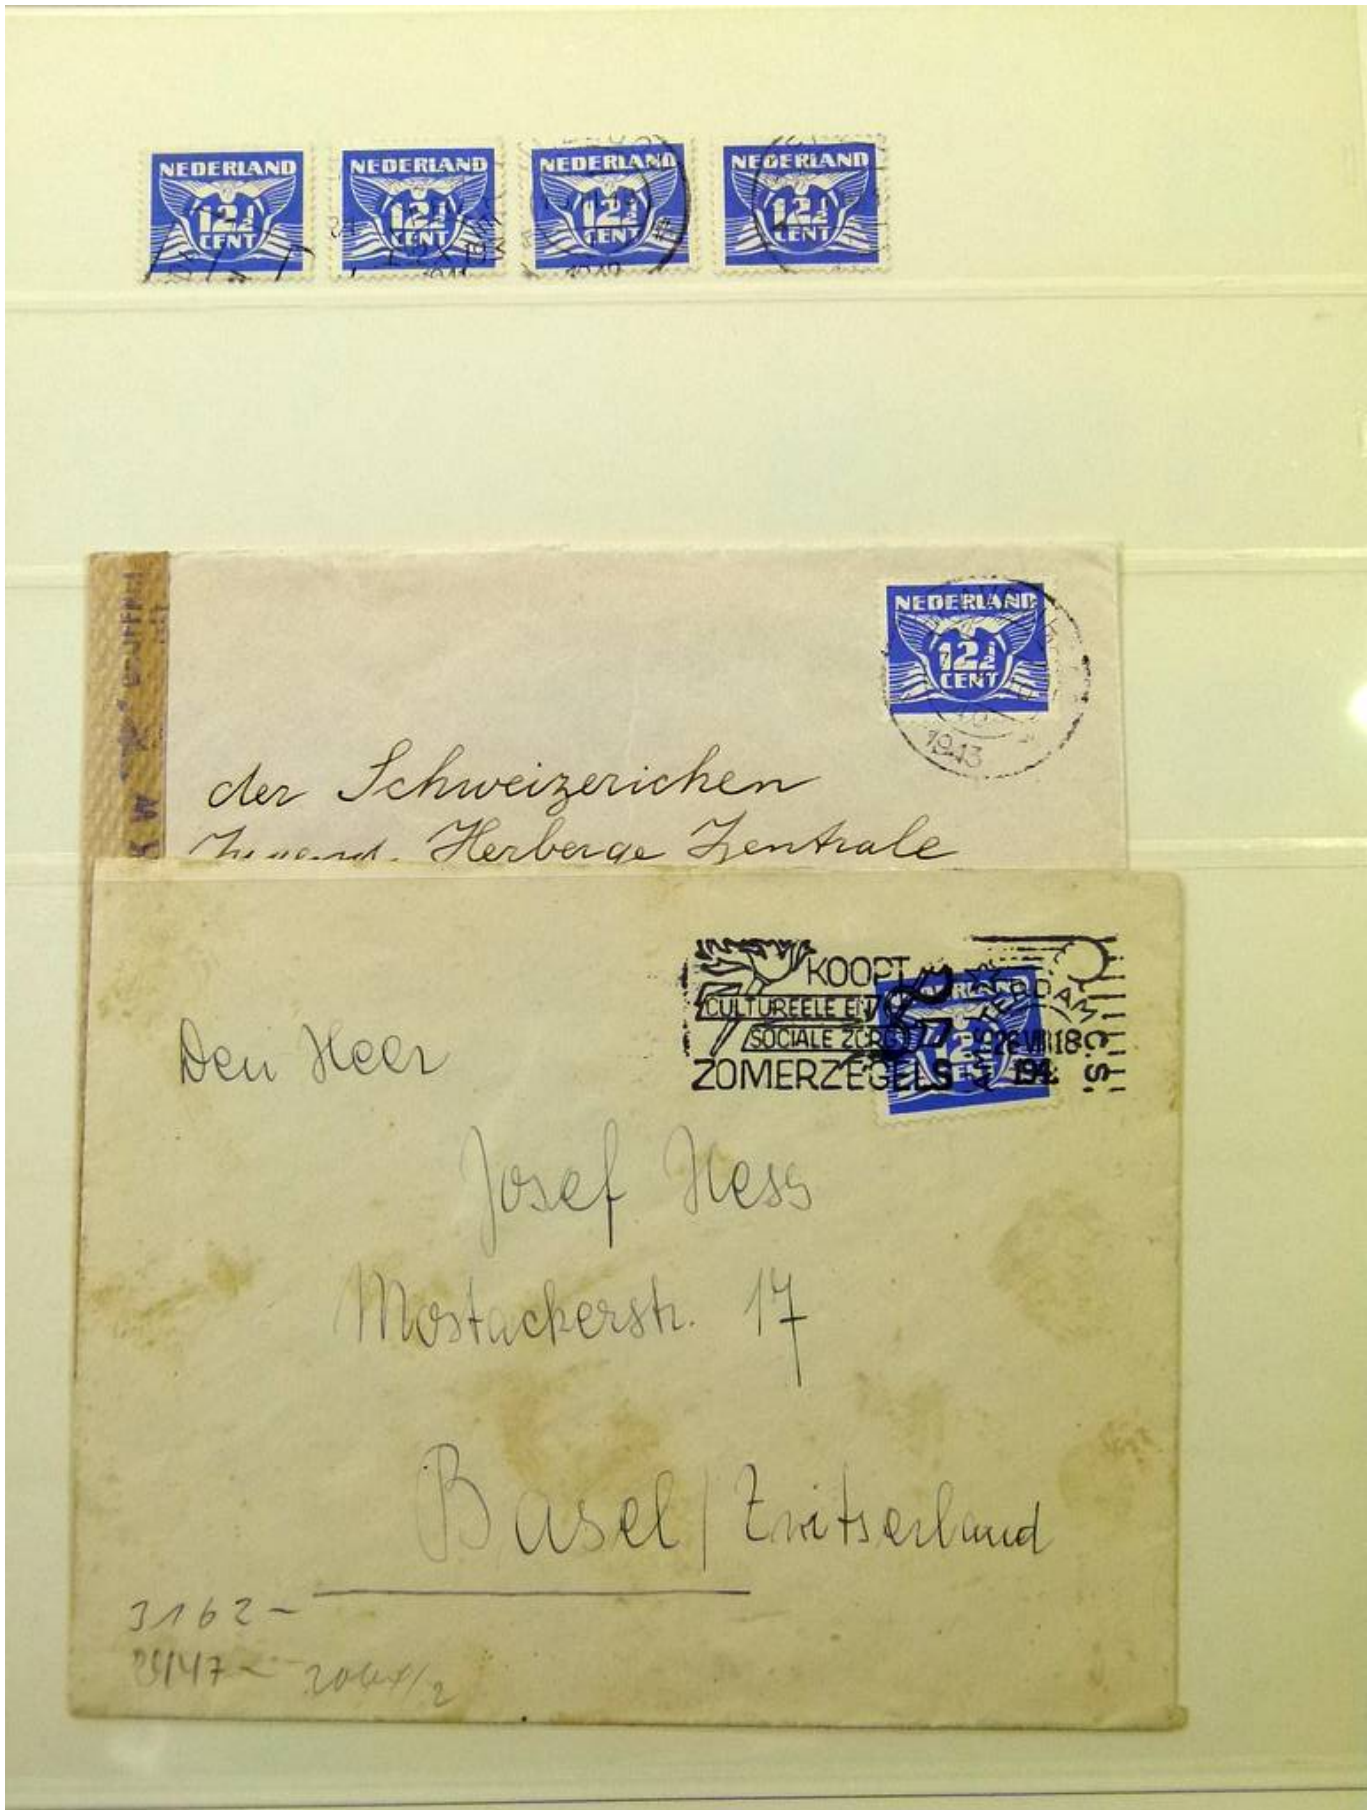 NEDERLAND
12½
CENT
NEDERLAND
12½
CENT
NEDERLAND
12½
CENT
NEDERLAND
12½
CENT
NEDERLAND
12½
CENT
1943
der Schweizerichen
Jugend. Herberge Zentrale
KOOPT
CULTUREELE EN
SOCIALE ZORG
ZOMERZEGELS
AMSTERDAM C.S.
Den Heer
Josef Hess
Mostackerstr. 17
Basel / Zwitserland
3162-